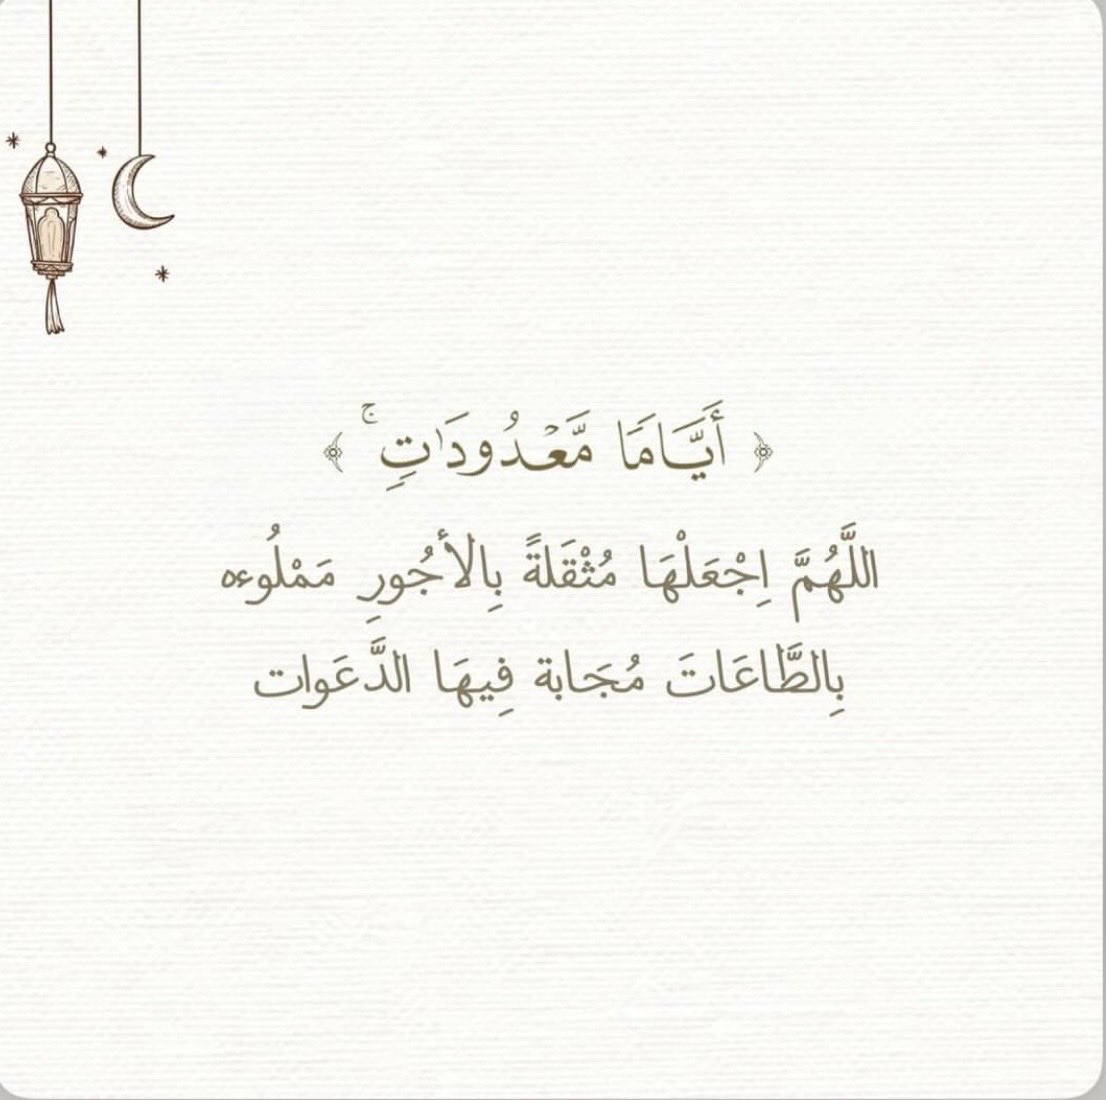 ﴿ أَيَّامٗا مَّعۡدُودَٰتٖۚ ﴾
اللَّهُمَّ اِجْعَلْهَا مُثْقَلةً بِالأجُورِ مَمْلُوءه
بِالطَّاعَاتَ مُجَابة فِيهَا الدَّعَوات